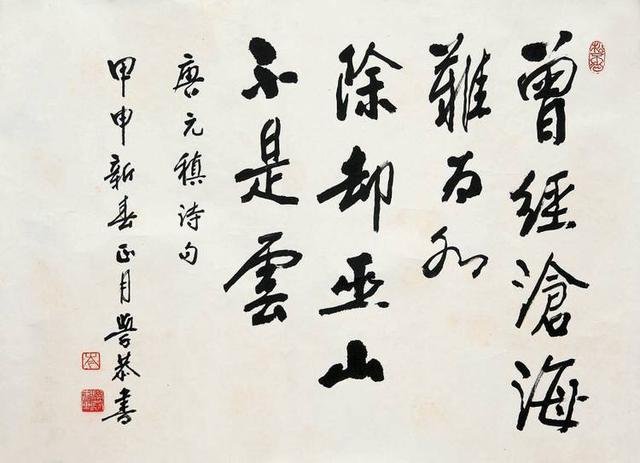 曾經滄海
難为水
除却巫山
不是雲
唐元稹诗句
甲申新春正月學恭書